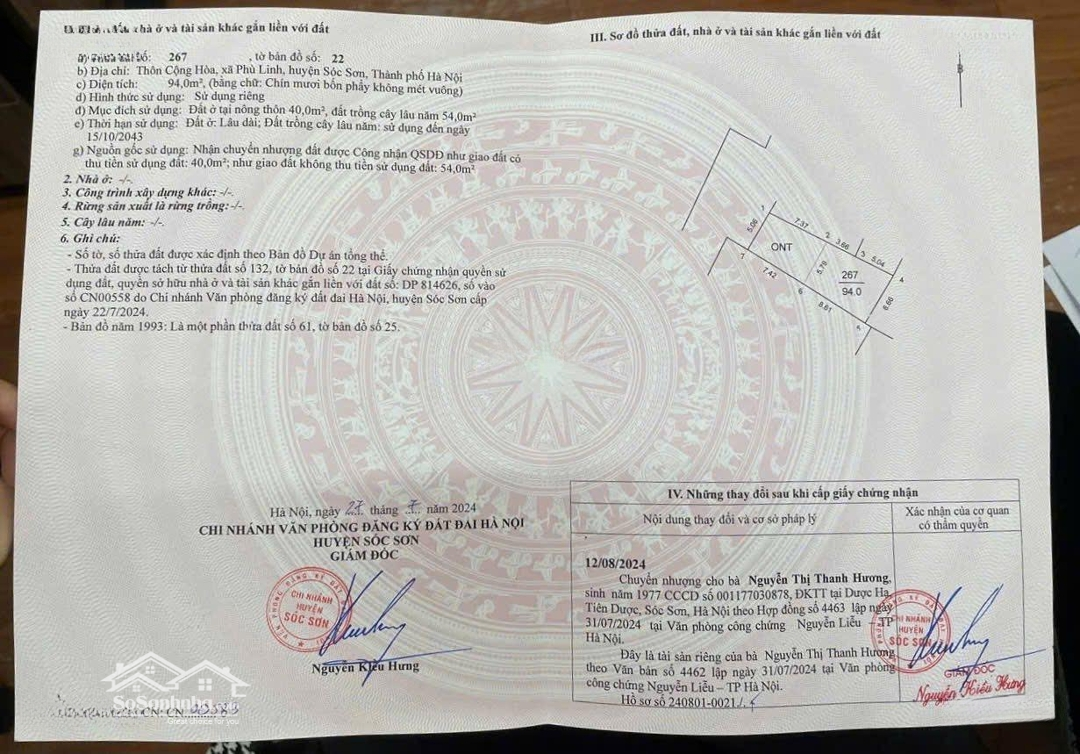 nhà ở và tài sản khác gắn liền với đất
267 , tờ bản đồ số: 22
b) Địa chỉ: Thôn Cộng Hòa, xã Phù Linh, huyện Sóc Sơn, Thành phố Hà Nội
c) Diện tích: 94,0m², (bằng chữ: Chín mươi bốn phẩy không mét vuông)
d) Hình thức sử dụng: Sử dụng riêng
đ) Mục đích sử dụng: Đất ở tại nông thôn 40,0m², đất trồng cây lâu năm 54,0m²
e) Thời hạn sử dụng: Đất ở: Lâu dài; Đất trồng cây lâu năm: sử dụng đến ngày
15/10/2043
g) Nguồn gốc sử dụng: Nhận chuyển nhượng đất được Công nhận QSDĐ như giao đất có
thu tiền sử dụng đất: 40,0m²; như giao đất không thu tiền sử dụng đất: 54,0m²
2. Nhà ở: -/-.
3. Công trình xây dựng khác: -/-.
4. Rừng sản xuất là rừng trồng: -/-.
5. Cây lâu năm: -/-.
6. Ghi chú:
- Số tờ, số thửa đất được xác định theo Bản đồ Dự án tổng thể.
- Thửa đất được tách từ thửa đất số 132, tờ bản đồ số 22 tại Giấy chứng nhận quyền sử
dụng đất, quyền sở hữu nhà ở và tài sản khác gắn liền với đất số: DP 814626, số vào
sổ CN00558 do Chi nhánh Văn phòng đăng ký đất đai Hà Nội, huyện Sóc Sơn cấp
ngày 22/7/2024.
- Bản đồ năm 1993: Là một phần thửa đất số 61, tờ bản đồ số 25.
Hà Nội, ngày 27 tháng 7 năm 2024
CHI NHÁNH VĂN PHÒNG ĐĂNG KÝ ĐẤT ĐAI HÀ NỘI
HUYỆN SÓC SƠN
GIÁM ĐỐC
CHI NHÁNH
HUYỆN
SÓC SƠN
Nguyễn Kiều Hưng
SoSonhnha
III. Sơ đồ thửa đất, nhà ở và tài sản khác gắn liền với đất
B
1
7.37
2
3.66
3
5.04
4
5.06
ONT
5.78
267
94.0
6.66
7
7.42
6
8.61
IV. Những thay đổi sau khi cấp giấy chứng nhận
Nội dung thay đổi và cơ sở pháp lý
Xác nhận của cơ quan
có thẩm quyền
12/08/2024
Chuyển nhượng cho bà Nguyễn Thị Thanh Hương,
sinh năm 1977 CCCD số 001177030878, ĐKTT tại Dược Hạ,
Tiên Dược, Sóc Sơn, Hà Nội theo Hợp đồng số 4463 lập ngày
31/07/2024 tại Văn phòng công chứng Nguyễn Liễu – TP
Hà Nội.
Đây là tài sản riêng của bà Nguyễn Thị Thanh Hương
theo Văn bản số 4462 lập ngày 31/07/2024 tại Văn phòng
công chứng Nguyễn Liễu – TP Hà Nội.
Hồ sơ số 240801-0021./.
CHI NHÁNH
HUYỆN
SÓC SƠN
GIÁM ĐỐC
Nguyễn Kiều Hưng